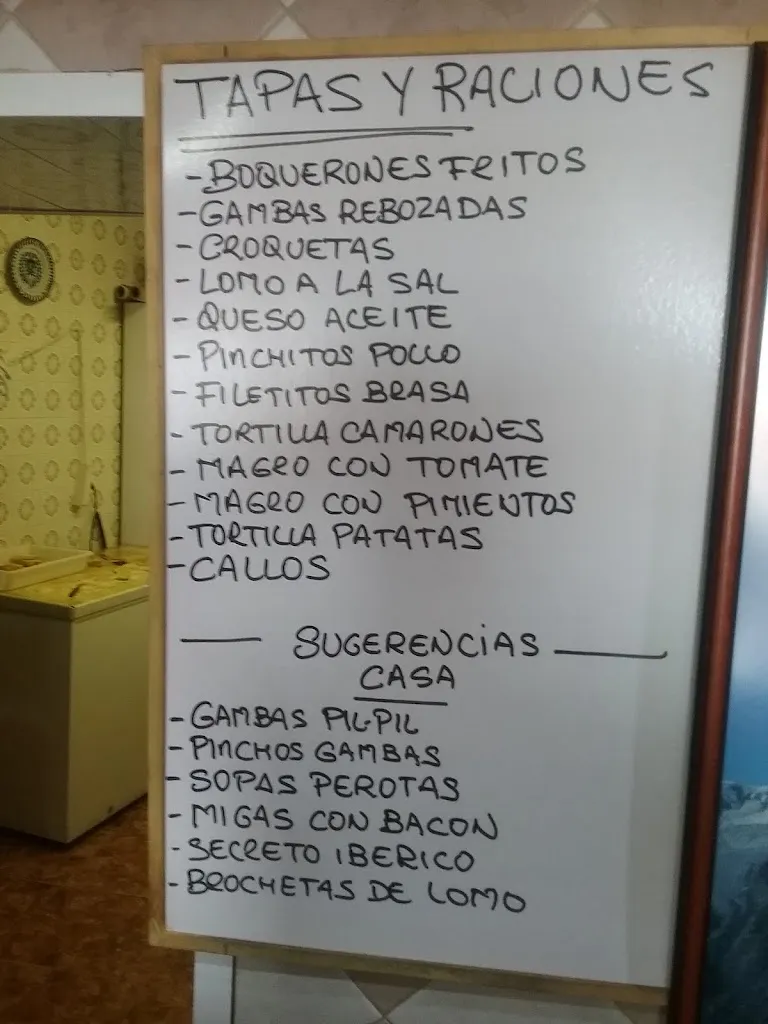 TAPAS Y RACIONES
- BOQUERONES FRITOS
- GAMBAS REBOZADAS
- CROQUETAS
- LOMO A LA SAL
- QUESO ACEITE
- PINCHITOS POLLO
- FILETITOS BRASA
- TORTILLA CAMARONES
- MAGRO CON TOMATE
- MAGRO CON PIMIENTOS
- TORTILLA PATATAS
- CALLOS
SUGERENCiAS
CASA
- GAMBAS PIL-PIL
- PINCHOS GAMBAS
- SOPAS PEROTAS
- MIGAS CON BACON
- SECRETO IBERICO
- BROCHETAS DE LOMO